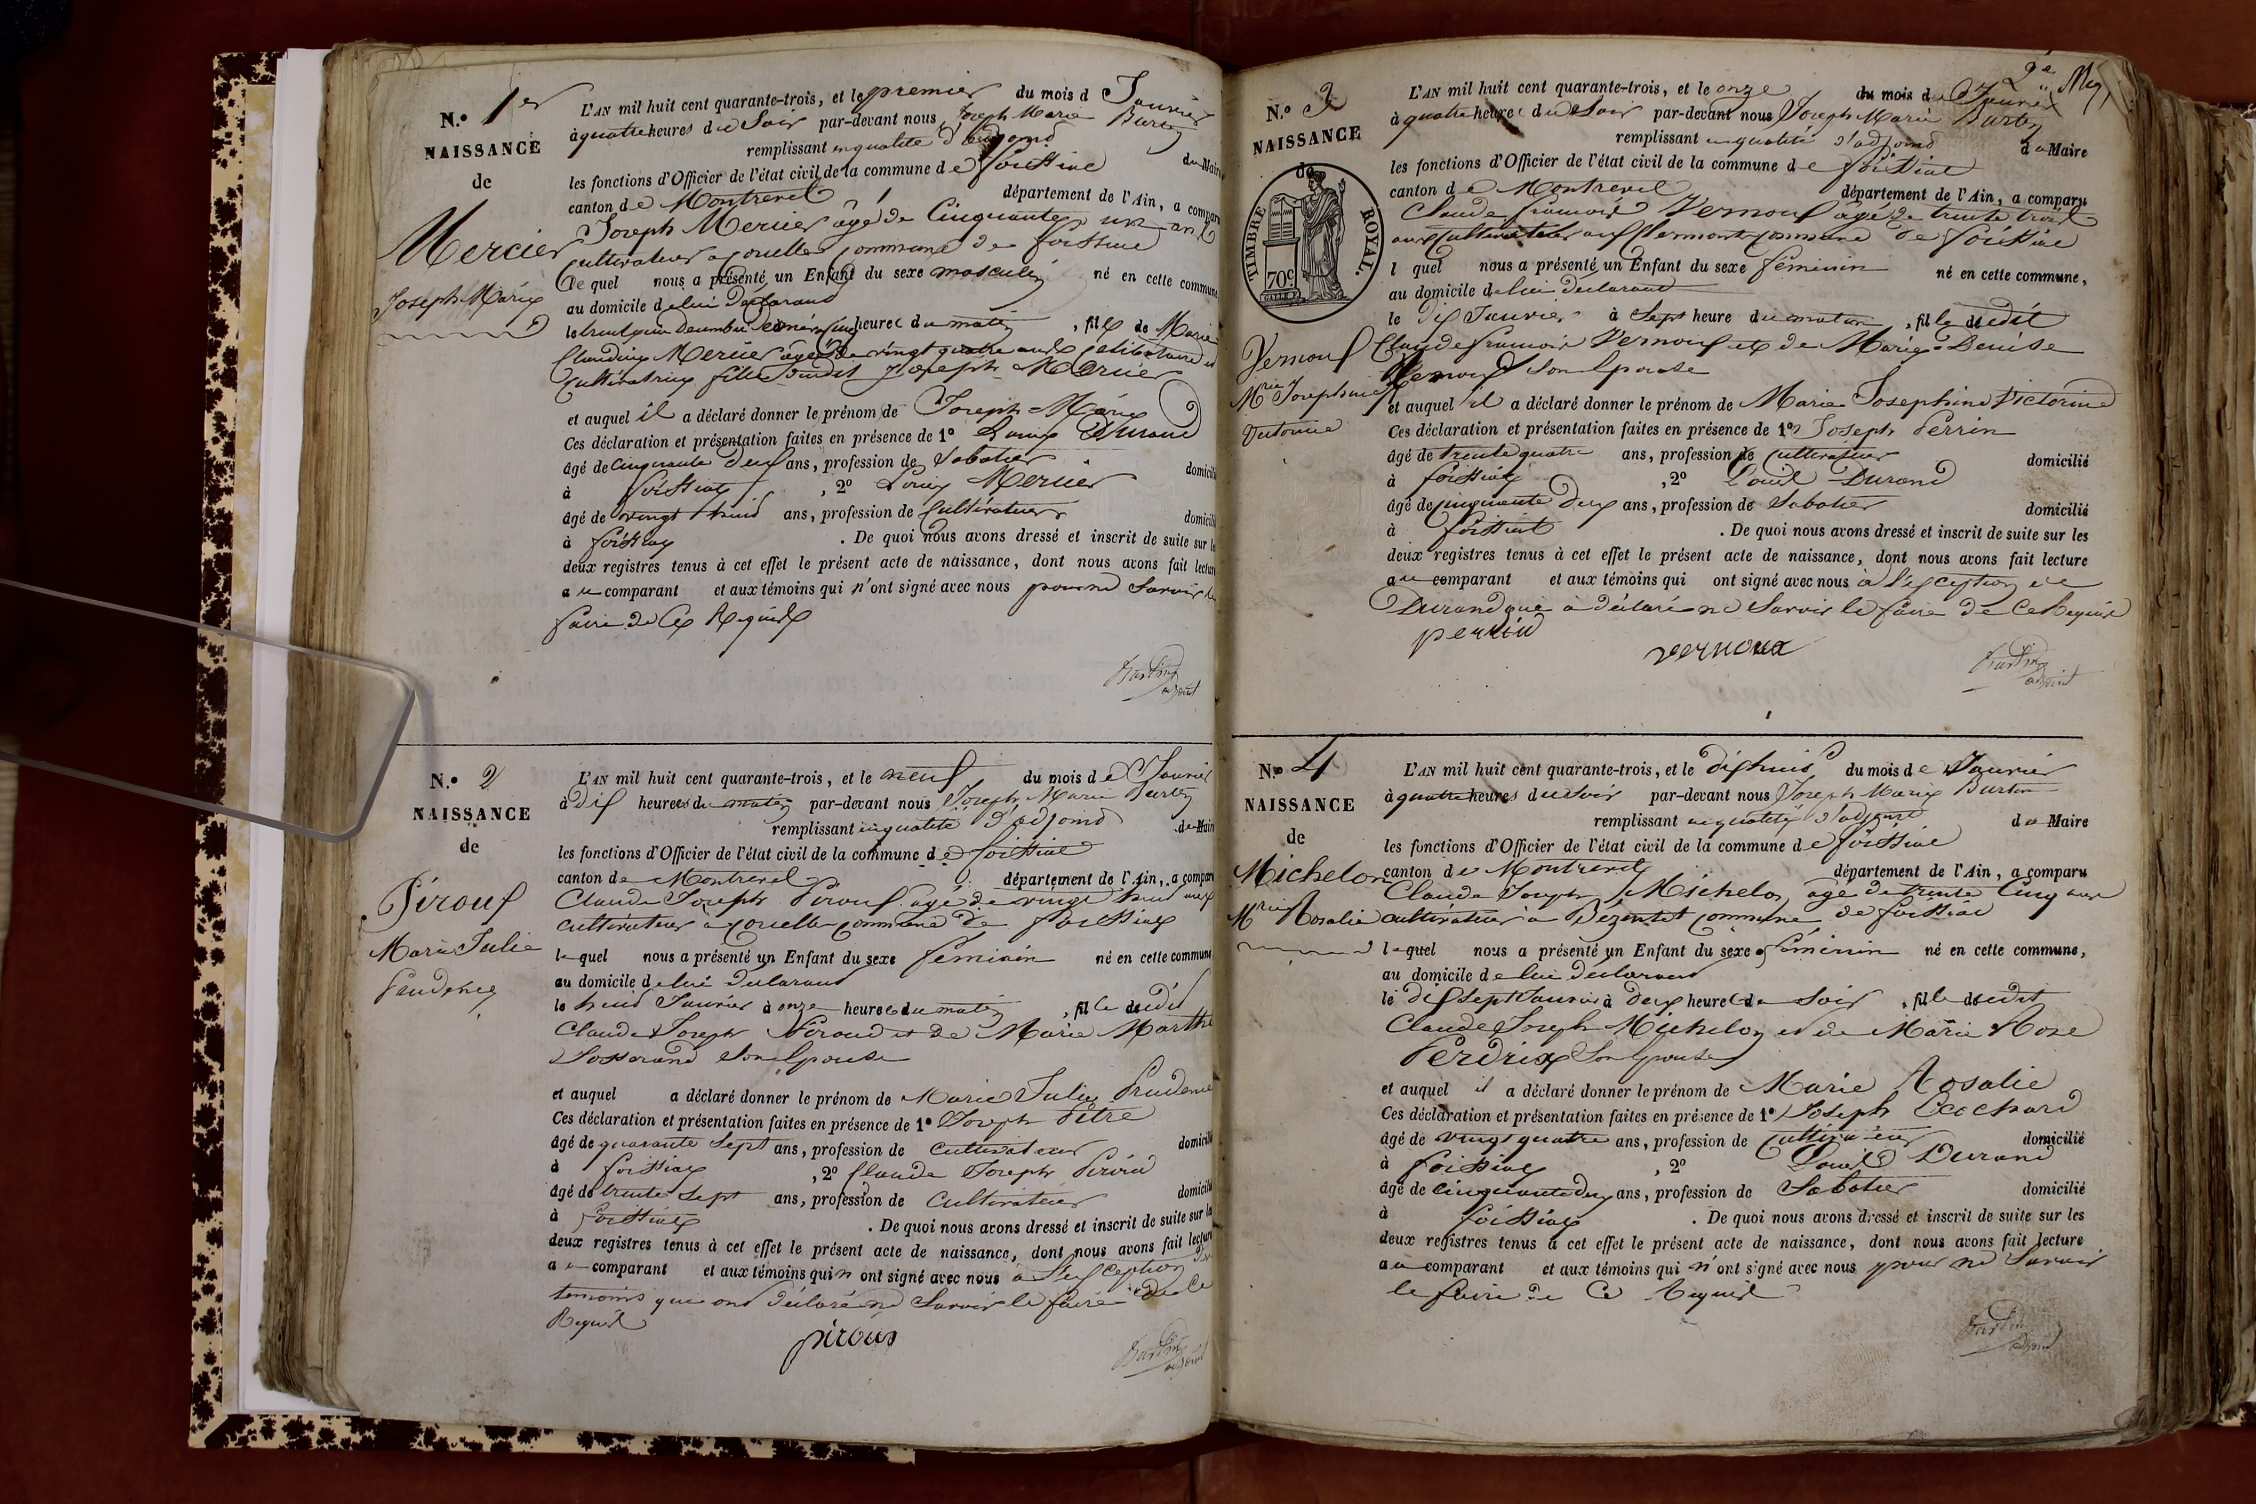 N.º 1er
NAISSANCE
de
Mercier
Joseph Marie
L'AN mil huit cent quarante-trois, et le premier du mois d Janvier
à quatre heures du Soir par-devant nous Joseph Marie
remplissant en qualité d'adjoint du Maire
les fonctions d'Officier de l'état civil de la commune de foissiat
canton de Montrevel département de l'Ain, a comparu
Joseph Mercier âgé de Cinquante un ans
cultivateur a commune de foissiat
le quel nous a présenté un Enfant du sexe masculin né en cette commune,
au domicile de lui déclarant
heures du matin, fils de Marie
Claudine Mercier âgée de vingt quatre ans célibataire et
cultivatrice fille dudit Joseph Mercier
et auquel il a déclaré donner le prénom de Joseph-Marie
Ces déclaration et présentation faites en présence de 1º Louis Durand
âgé de cinquante deux ans, profession de Sabotier domicilié
à foissiat, 2º Louis Mercier
âgé de vingt huit ans, profession de Cultivateur domicilié
à foissiat. De quoi nous avons dressé et inscrit de suite sur les
deux registres tenus à cet effet le présent acte de naissance, dont nous avons fait lecture
au comparant et aux témoins qui n'ont signé avec nous pour ne Savoir le
faire de ce Requis
adjoint
N.º 2
NAISSANCE
de
Piroux
Marie Julie
Prudence
L'AN mil huit cent quarante-trois, et le neuf du mois de Janvier
à dix heures du matin par-devant nous Joseph Marie
remplissant en qualité d'adjoint du Maire
les fonctions d'Officier de l'état civil de la commune de foissiat
canton de Montrevel département de l'Ain, a comparu
Claude Joseph Piroux agé de vingt huit ans
cultivateur a commune de foissiat
lequel nous a présenté un Enfant du sexe féminin né en cette commune
au domicile de lui déclarant
le huit Janvier à onze heures du matin, fille dudit
Claude Joseph Piroud et de Marie Marthe
son épouse
et auquel a déclaré donner le prénom de Marie Julie Prudence
Ces déclaration et présentation faites en présence de 1º Joseph Pètre
âgé de quarante sept ans, profession de cultivateur domicilié
à foissiat, 2º Claude Joseph
âgé de trente sept ans, profession de cultivateur domicilié
à foissiat. De quoi nous avons dressé et inscrit de suite sur les
deux registres tenus à cet effet le présent acte de naissance, dont nous avons fait lecture
au comparant et aux témoins qui n ont signé avec nous à l'exception des
témoins qui ont déclaré ne Savoir le faire de ce
Requis
piroux
adjoint
2e
N.º 3
NAISSANCE
de
TIMBRE ROYAL.
70c.
Vernoux
Mrie Josephine
Victorine
L'AN mil huit cent quarante-trois, et le onze du mois de Janvier
à quatre heure du Soir par-devant nous Joseph Marie
remplissant en qualité d'adjoint du Maire
les fonctions d'Officier de l'état civil de la commune de foissiat
canton de Montrevel département de l'Ain, a comparu
Claude françois Vernoux âgé de trente trois
ans Cultivateur commune de foissiat
l quel nous a présenté un Enfant du sexe féminin né en cette commune,
au domicile de lui déclarant
le dix Janvier à Sept heure du matin, fille dudit
Claude françois Vernoux et de Marie-Denise
son Epouse
et auquel il a déclaré donner le prénom de Marie Josephine Victorine
Ces déclaration et présentation faites en présence de 1º Joseph Perrin
âgé de trente quatre ans, profession de cultivateur domicilié
à foissiat, 2º Louis Durand
âgé de cinquante deux ans, profession de Sabotier domicilié
à foissiat. De quoi nous avons dressé et inscrit de suite sur les
deux registres tenus à cet effet le présent acte de naissance, dont nous avons fait lecture
au comparant et aux témoins qui ont signé avec nous à l'exception de
Durand qui a déclaré ne Savoir le faire de ce Requis
perrin
vernoux
adjoint
N.º 4
NAISSANCE
de
Michelon
Mrie Rosalie
L'AN mil huit cent quarante-trois, et le dix huit du mois de Janvier
à quatre heures du Soir par-devant nous Joseph Marie
remplissant en qualité d'adjoint du Maire
les fonctions d'Officier de l'état civil de la commune de foissiat
canton de Montrevel département de l'Ain, a comparu
Claude Joseph Michelon âgé de trente cinq ans
cultivateur à commune de foissiat
lequel nous a présenté un Enfant du sexe féminin né en cette commune,
au domicile de lui déclarant
le dix Sept Janvier à deux heures du Soir, fille dudit
Claude Joseph Michelon et de Marie Rose
Perdrix Son épouse
et auquel il a déclaré donner le prénom de Marie Rosalie
Ces déclaration et présentation faites en présence de 1º Joseph Ecochard
âgé de vingt quatre ans, profession de cultivateur domicilié
à foissiat, 2º Louis Durand
âgé de cinquante deux ans, profession de Sabotier domicilié
à foissiat. De quoi nous avons dressé et inscrit de suite sur les
deux registres tenus à cet effet le présent acte de naissance, dont nous avons fait lecture
au comparant et aux témoins qui n'ont signé avec nous pour ne Savoir
le faire de ce Requis
adjoint